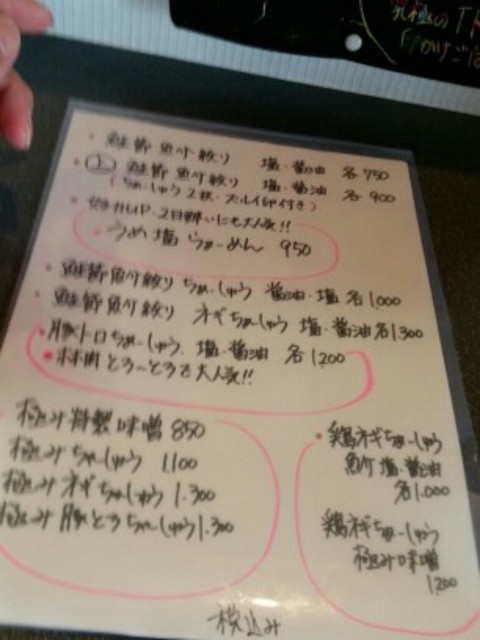 究極の
・鮭節魚介絞り 塩・醤油 各750
・上 鮭節魚介絞り 塩・醤油 各900
(ちゃーしゅう2枚・スルイ卵付き)
UP・2日酔いにも大人気!!
・うめ塩らぁーめん 950
・鮭節魚介絞り ちゃーしゅう 醤油・塩 各1,000
・鮭節魚介絞り ネギちゃーしゅう 塩・醤油 各1,300
・豚トロちゃーしゅう、塩・醤油 各1200
・ とろ〜とろで大人気!!
極み特製味噌 850
極みちゃーしゅう 1,100
極みネギちゃーしゅう 1,300
極み豚とろちゃーしゅう 1,300
・鶏ネギちゃーしゅう
魚介 塩・醤油
各1,000
鶏ネギちゃーしゅう
極み味噌
1,200
税込み